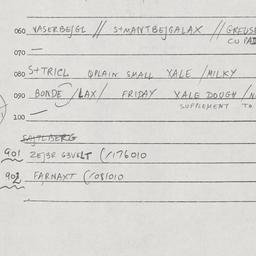 060 VASERBEJGL // S+MANTBEJGALAX // GREUSE
CU PAD
070 —
080 S+TRICL QPLAIN SMALL YALE / MILKY
090 BONDE / LAX / FRIDAY YALE DOUGH / N
SUPPLEMENT TO
100 —
901 ZEJER G3VELT (/176010
902 FARNAXT (/081010